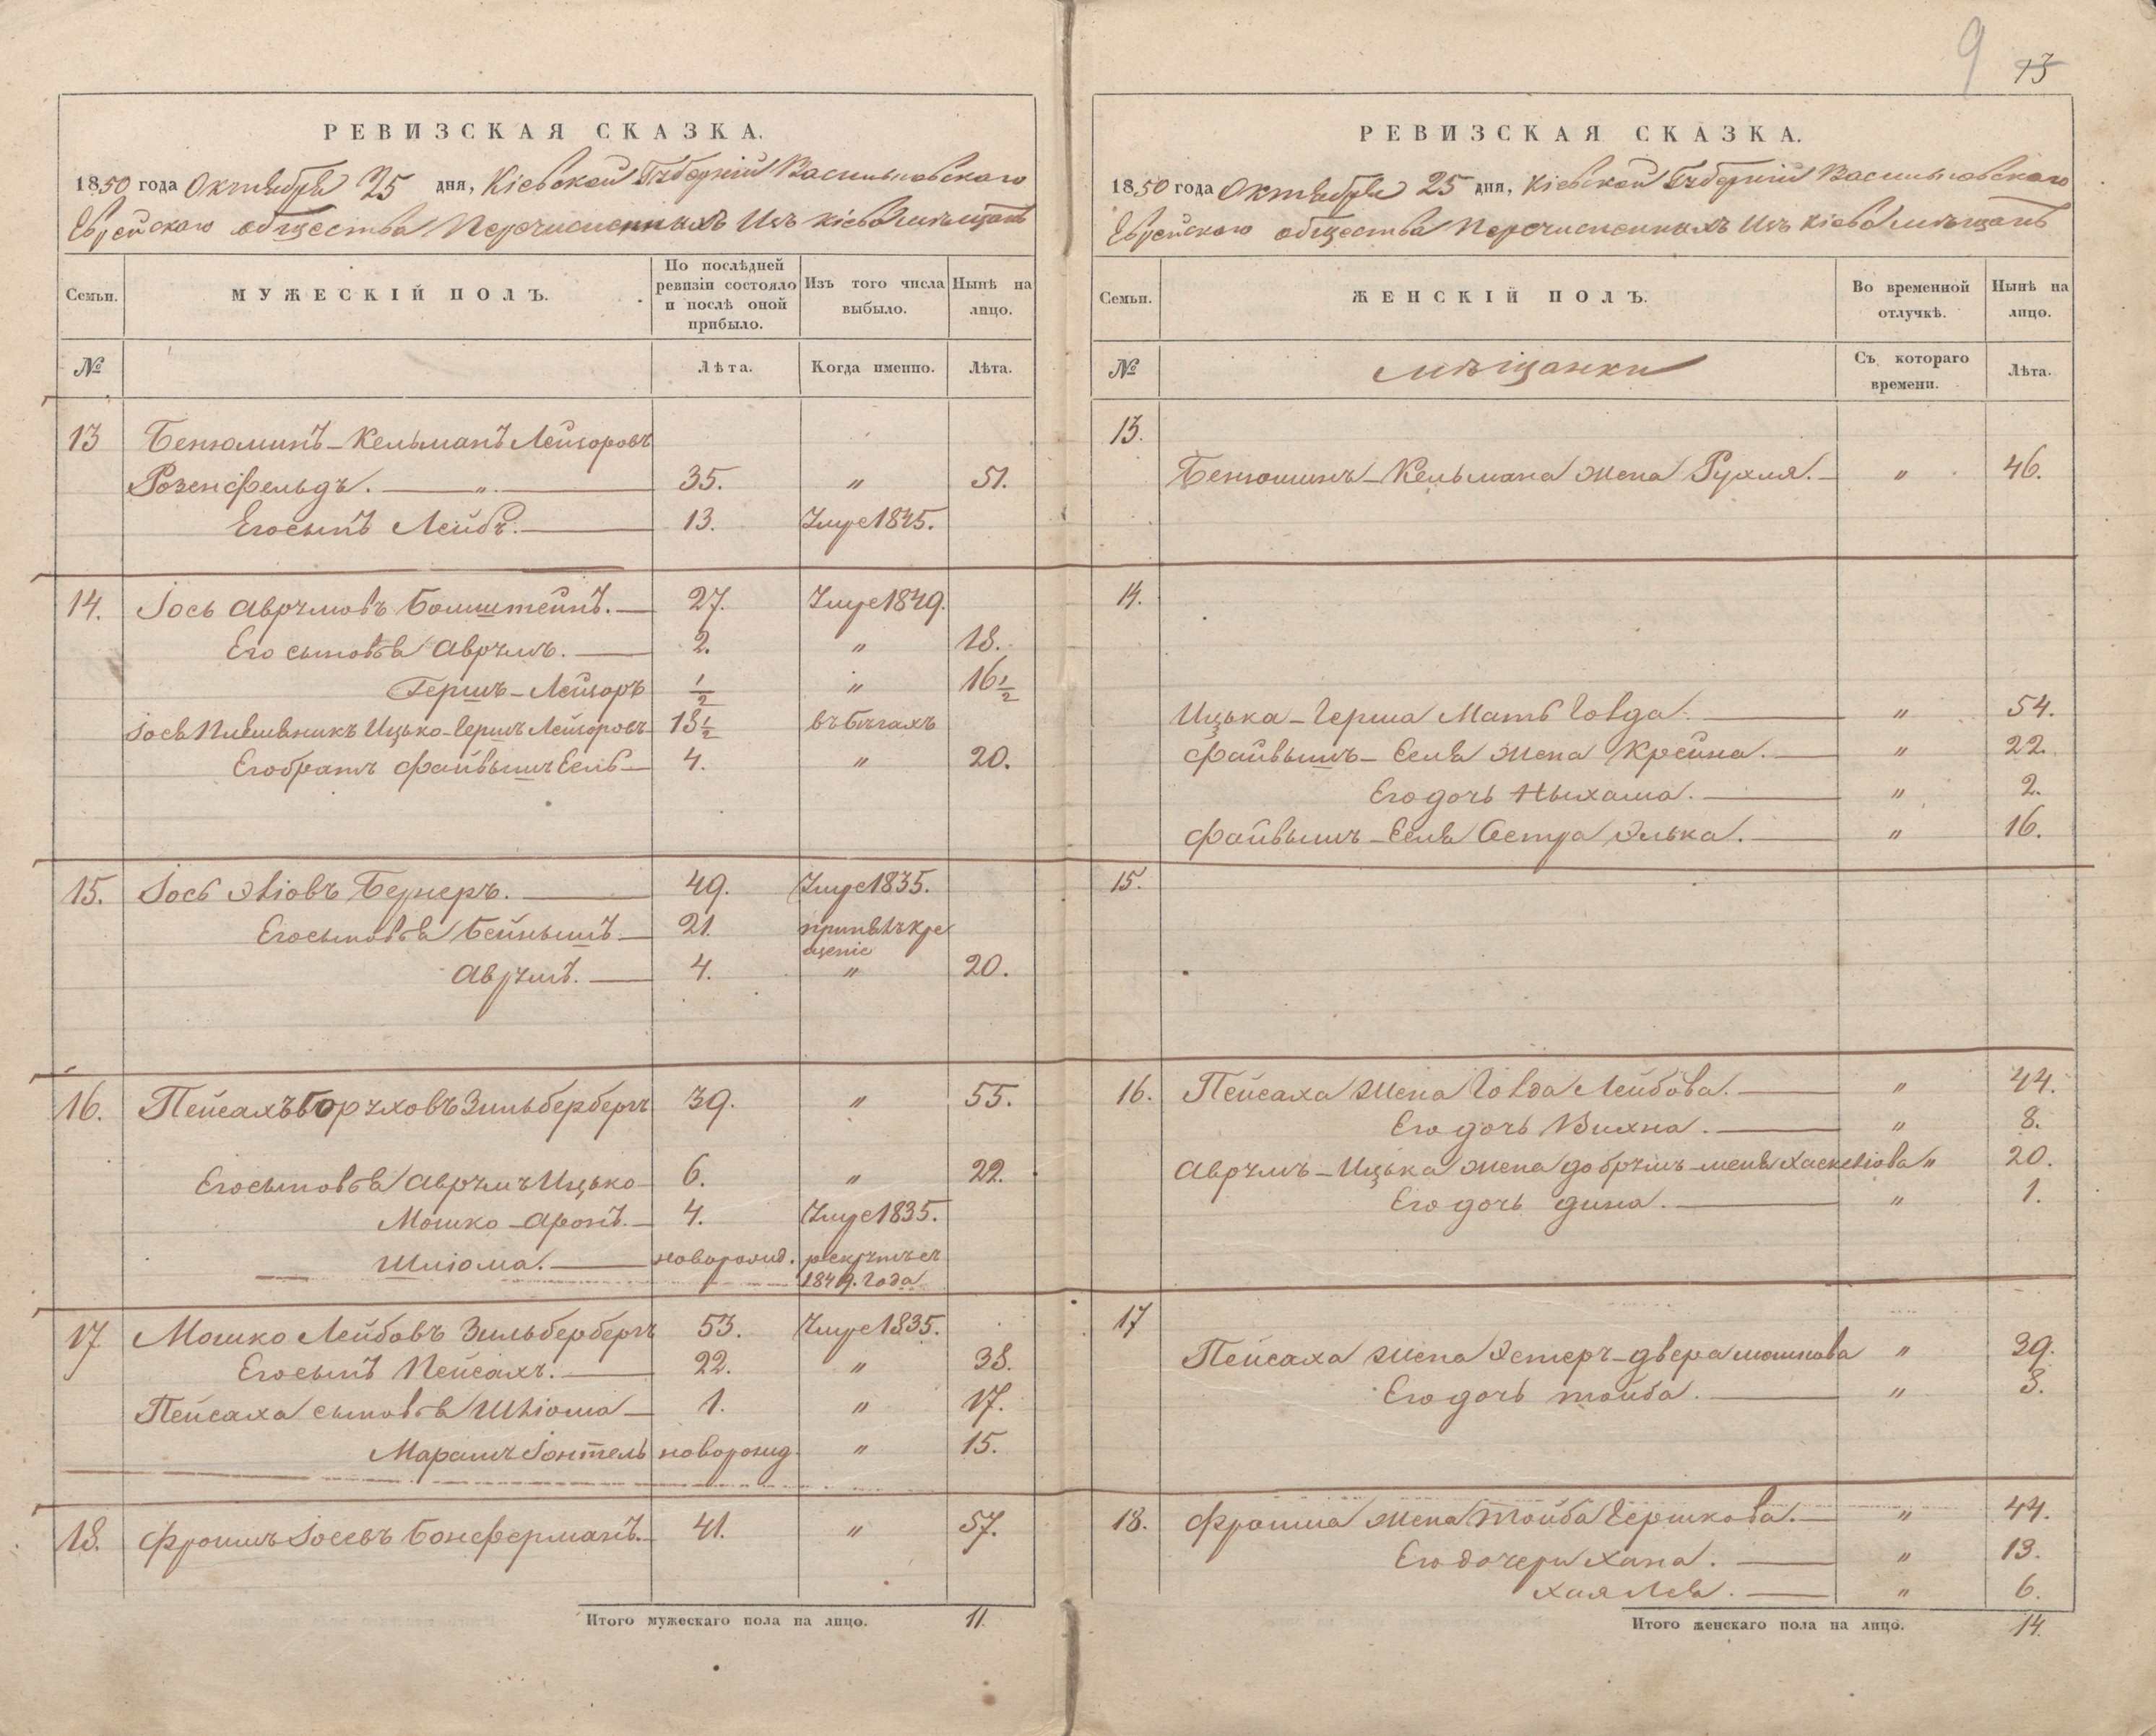 9 13
РЕВИЗСКАЯ СКАЗКА.
1850 года Октября 25 дня, Кіевской Губерніи Васильковскаго
Еврейскаго общества Перечисленныхъ Изъ Кіева мѣщанъ
Семьи.
МУЖЕСКІЙ ПОЛЪ.
По послѣдней ревизіи состояло и послѣ оной прибыло.
Изъ того числа выбыло.
Нынѣ на лицо.
№
Лѣта.
Когда именно.
Лѣта.
13 Бенюминъ-Кельманъ Лейзоровъ
Розенфельдъ. — „ — 35. „ 51.
Его сынъ Лейбъ. — 13. Умре 1845.
14. Іось Аврумовъ Бомштейнъ. — 27. Умре 1849.
Его сыновья Аврумъ. — 2. „ 18.
Гершъ-Лейзоръ ½ „ 16½
Іося Ицько-Гершъ Лейзоровъ 18½ въ бегахъ
Его братъ Файвышъ Есель — 4. „ 20.
15. Іось Бернеръ. — 49. Умре 1835.
Его сыновья Бейнышъ — 21. принялъ кре
щеніе
Аврумъ. — 4. „ 20.
16. Пейсахъ Боруховъ Зильбербергъ 39. „ 55.
Его сыновья Аврумъ Ицько 6. „ 22.
Мошко-Аронъ. — 4. Умре 1835.
Шліома. — новорожд. рекрутъ съ
1849. Года
17 Мошко Лейбовъ Зильбербергъ 53. Умре 1835.
Его сынъ Пейсахъ. — 22. „ 38.
Пейсаха сыновья Шліома — 1. „ 17.
Іонтель новорожд „ 15.
18. Фроимъ Іосевъ Бонферманъ. — 41. „ 57.
Итого мужескаго пола на лицо. 11.
РЕВИЗСКАЯ СКАЗКА.
1850 года Октября 25 дня, Кіевской Губерніи Васильковскаго
Еврейскаго общества Перечисленныхъ Изъ Кіева мѣщанъ
Семьи.
ЖЕНСКІЙ ПОЛЪ.
Во временной отлучкѣ.
Нынѣ на лицо.
№
мѣщанки
Съ котораго времени.
Лѣта.
13.
Бенюминъ-Кельмана жена Рухля. — „ 46.
14.
Ицька-Герша Мать Голда. — „ 54.
Файвышъ-Еселя жена Крейна. — „ 22.
Его дочь Ныхама. — „ 2.
Файвышъ-Еселя Сестра Элька. — „ 16.
15.
16. Пейсаха жена Голда Лейбова. — „ 44.
Его дочь Вихна. — „ 8.
Аврумъ-Ицька жена Добрушъ-меня Хаскеліова „ 20.
Его дочь Дина. — „ 1.
17
Пейсаха жена Эстеръ-Двера мошкова „ 39.
Его дочь тойба. — „ 3.
18. Фроима жена Тойба Гершкова. — „ 44.
Его дочери Хана. — „ 13.
Хая Лея. — „ 6.
Итого женскаго пола на лицо. 14.